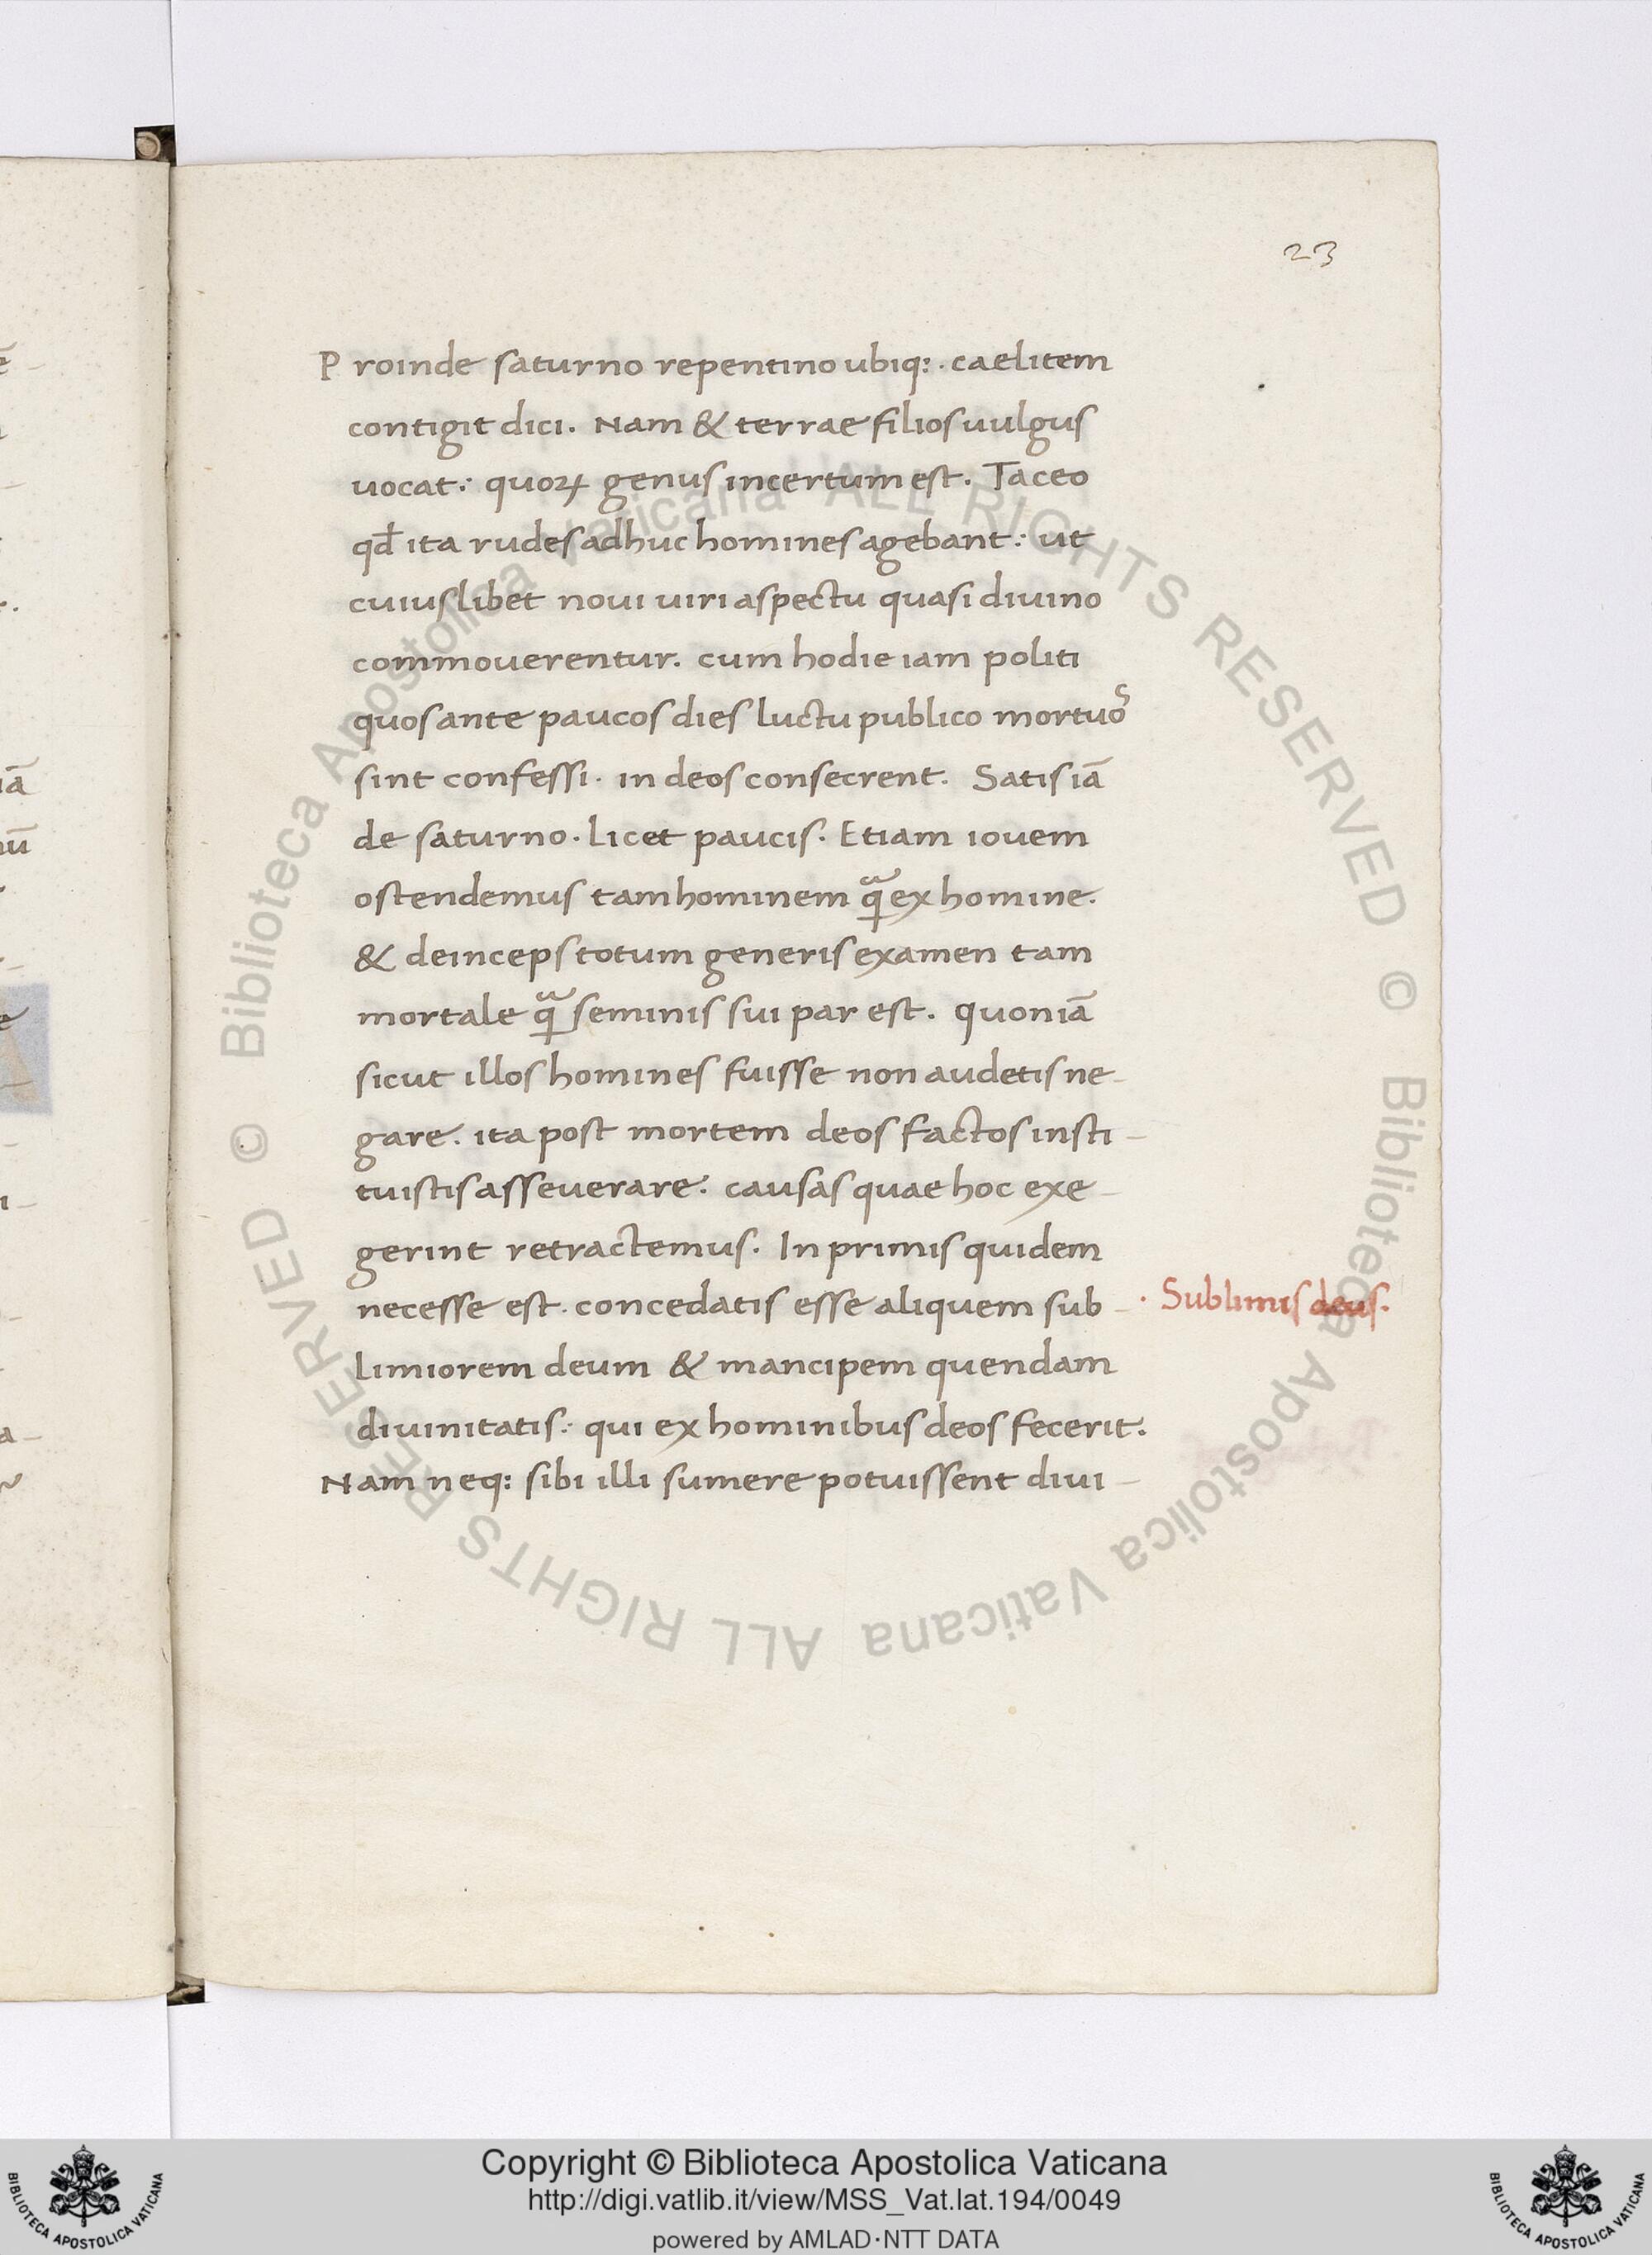 23
Proinde saturno repentino ubiq: · caelitem
contigit dici. Nam & terrae filios uulgus
uocat: quoꝝ genus incertum est. Taceo
qđ ita rudes adhuc homines agebant: ut
cuiuslibet noui uiri aspectu quasi diuino
commouerentur. cum hodie iam politi
quos ante paucos dies luctu publico mortuoˢ
sint confessi· in deos consecrent. Satis iā
de saturno· Licet paucis. Etiam iouem
ostendemus tam hominem qᷓ ex homine.
& deinceps totum generis examen tam
mortale qᷓ seminis sui par est. quoniā
sicut illos homines fuisse non audetis ne-
gare. ita post mortem deos factos insti-
tuistis asseuerare. causas quae hoc exe-
gerint retractemus. In primis quidem
necesse est. concedatis esse aliquem sub-
limiorem deum & mancipem quendam
diuinitatis: qui ex hominibus deos fecerit.
Nam neq: sibi illi sumere potuissent diui-
· Sublimis deus.
© Biblioteca Apostolica Vaticana ALL RIGHTS RESERVED © Biblioteca Apostolica Vaticana ALL RIGHTS RESERVED
Copyright © Biblioteca Apostolica Vaticana
http://digi.vatlib.it/view/MSS_Vat.lat.194/0049
powered by AMLAD·NTT DATA
BIBLIOTECA APOSTOLICA VATICANA
BIBLIOTECA APOSTOLICA VATICANA